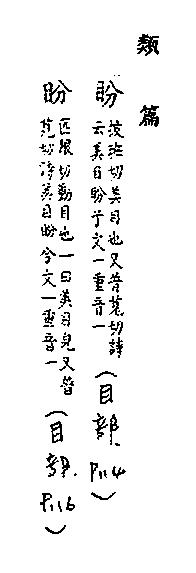 類篇
盼
班切美目也又普莧切詩
云美目盼兮文一重音一
(目部.P114)
盼
匹限切動目也一曰美目皃又普
莧切詩美目盼兮文一重音一
(目部.P116)